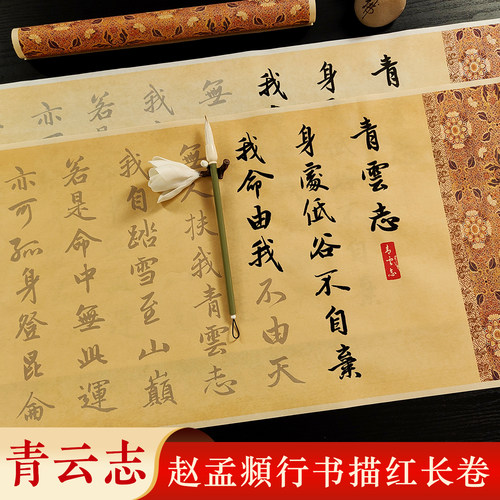 青
身
我命
無
我
若是
亦可
青雲志
青云志
身處低谷不自棄
我命由我不由天
無人扶我青雲志
我自踏雪至山巔
若是命中無此運
亦可孤身登昆侖
青云志
赵孟頫行书描红长卷